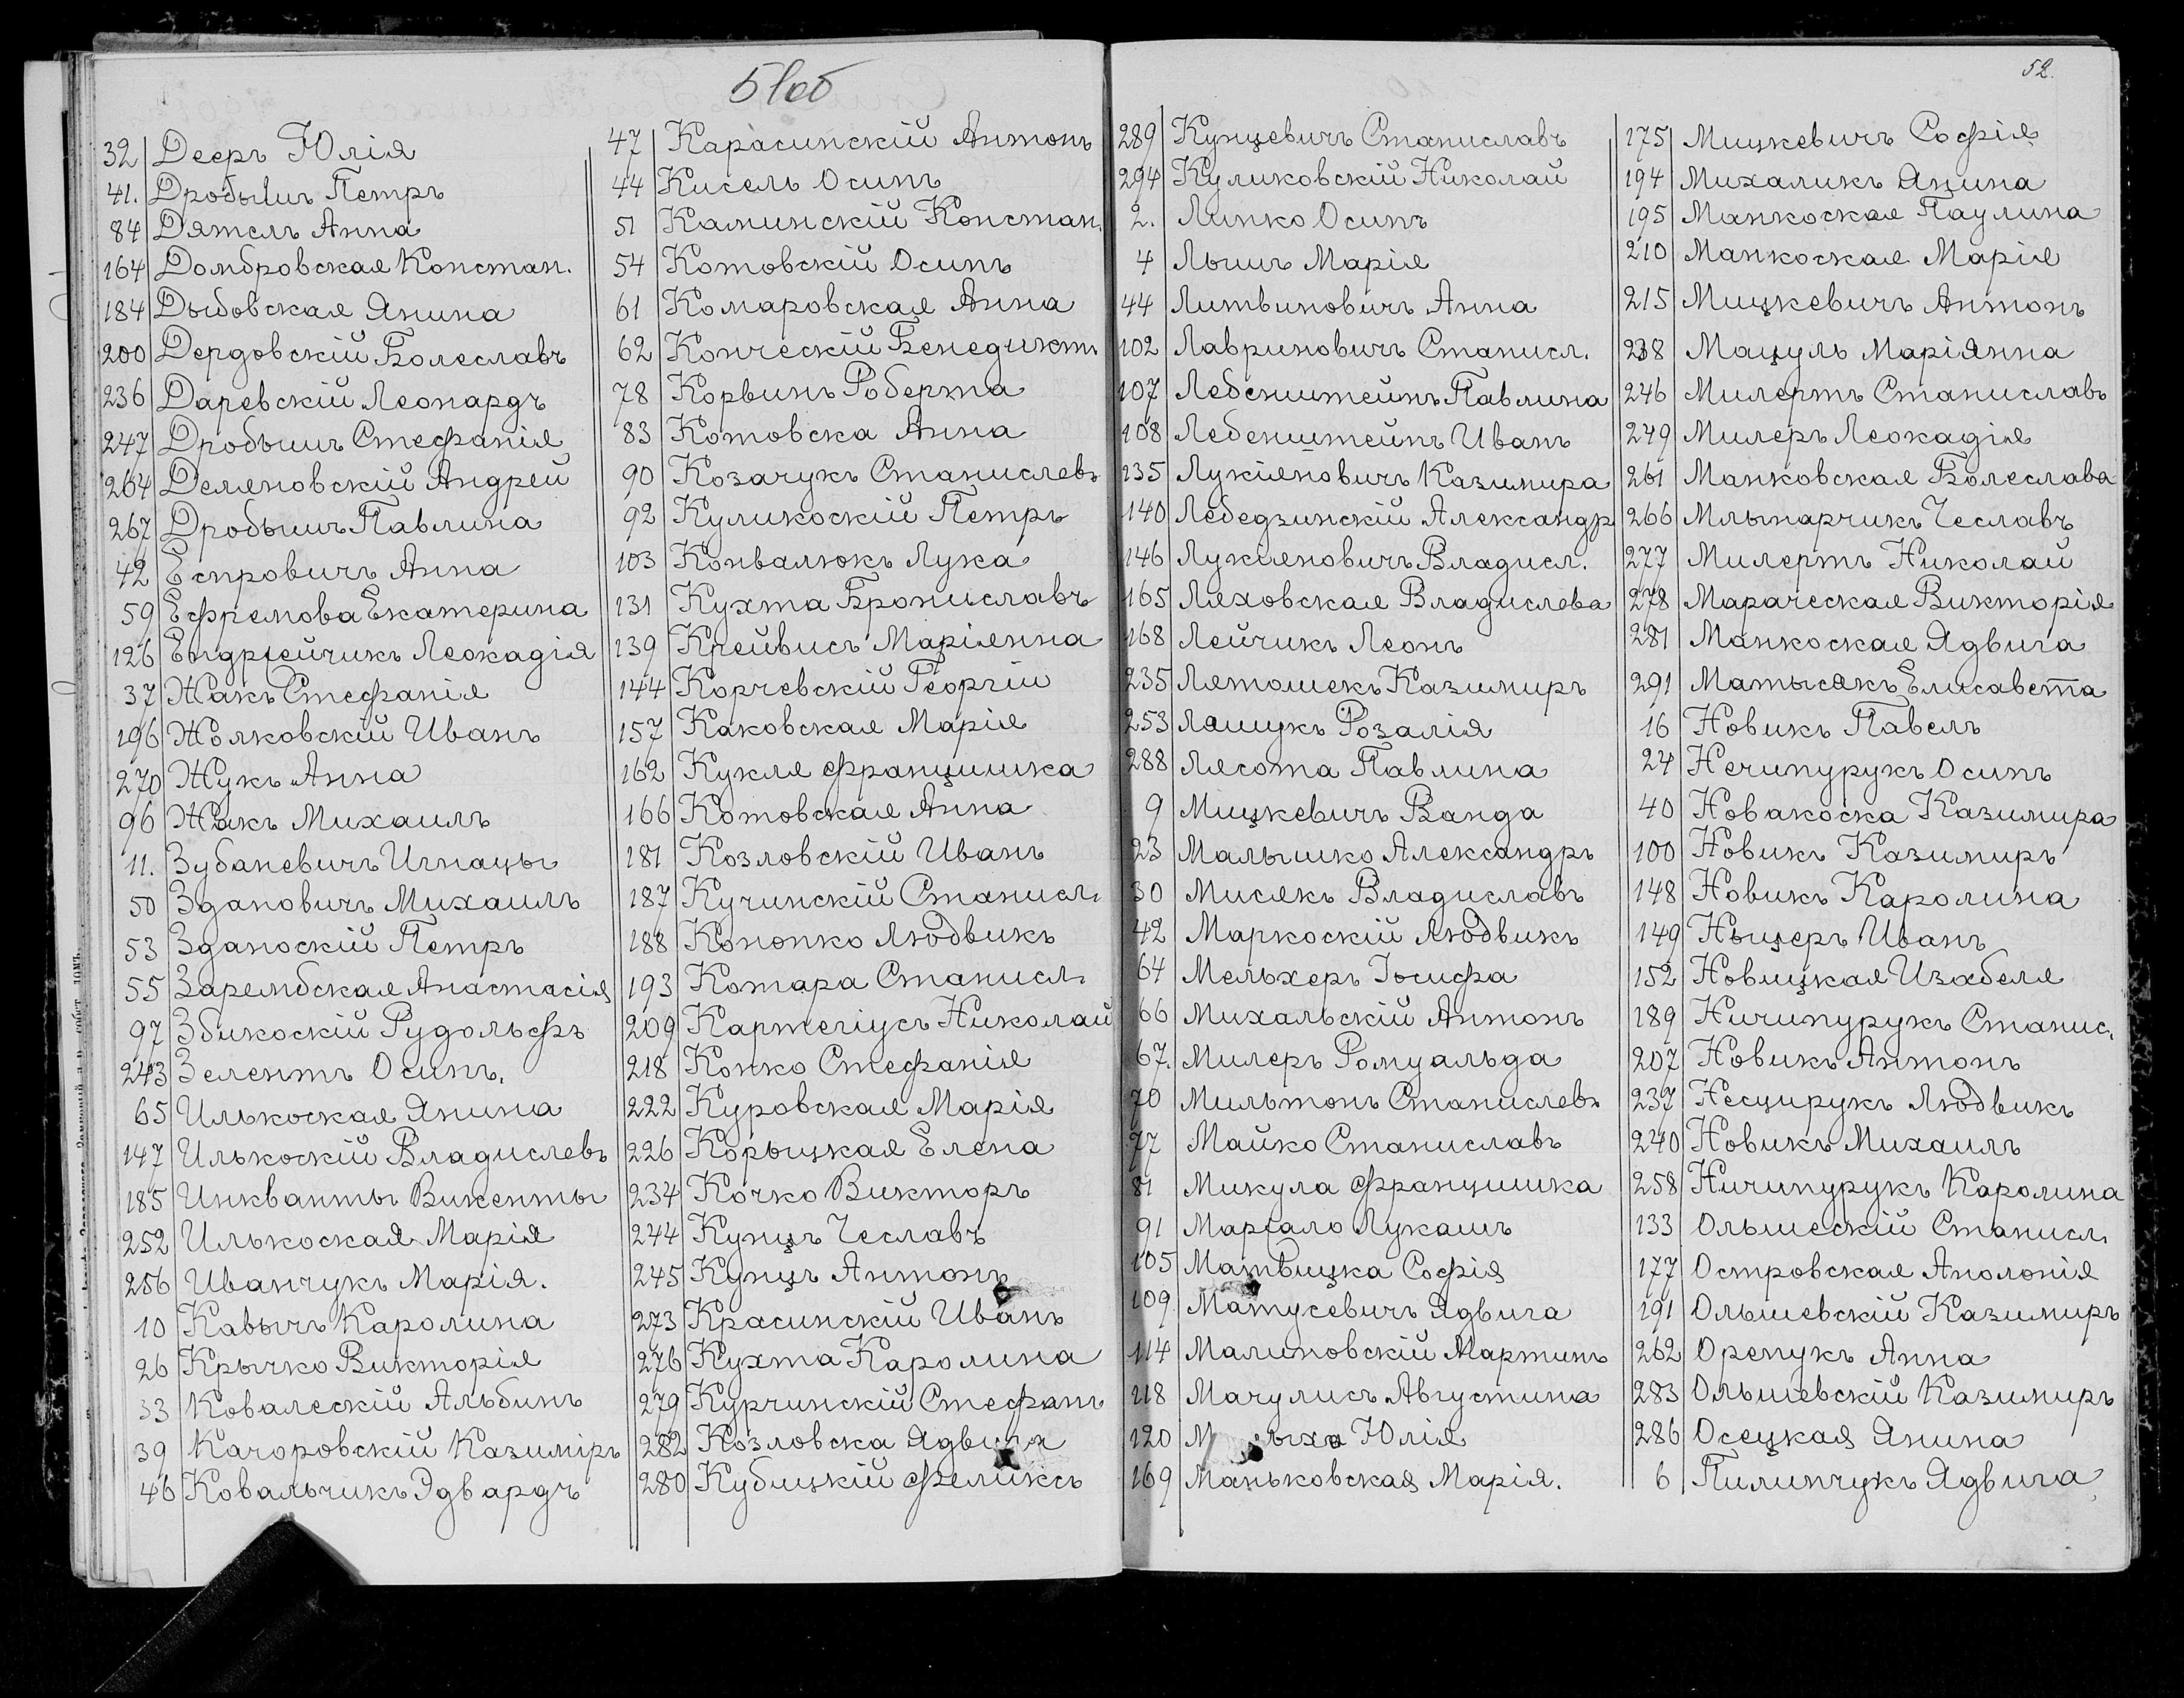 51об
32 Деєръ Юлія
41. Дробышъ Петръ
84 Дятелъ Анна
164 Домбровская Констан.
184 Дыбовская Янина
200 Дердовскій Болеславъ
236 Даревскій Леонардъ
247 Дробышъ Стефанія
264 Деляновскій Андрей
267 Дробышъ Павлина
42 Еспровичъ Анна
59 Ефремова Екатерина
126 Ендрсейчикъ Леокадія
37 Жакъ Стефанія
196 Жолковскій Иванъ
270 Жукъ Анна
96 Жакъ Михаилъ
11. Зубаневичъ Игнацы
50 Здановичъ Михаилъ
53 Зданоскій Петръ
55 Зарембская Анастасія
97 Збикоскій Рудольфъ
243 Зелентъ Осипъ.
65 Илькоская Янина
147 Илькоскій Владислевъ
185 Инкванты Викенты
252 Илькоская Марія
256 Иванчукъ Марія.
10 Кавычъ Каролина
26 Крычко Викторія
33 Ковалескій Альбинъ
39 Качоровскій Казиміръ
46 Ковальчикъ Эдвардъ
47 Карасинскій Антонъ
44 Кисель Осипъ
51 Каминскій Констан.
54 Котовскій Осипъ
61 Комаровская Анна
62 Конческій Бенедиктъ
78 Корвинъ Роберта
83 Котовска Анна
90 Козачукъ Станислевъ
92 Куликоскій Петръ
103 Конвалюкъ Лука
131 Кухта Брониславъ
139 Крейвисъ Маріянна
144 Корчевскій Георгій
157 Каковская Марія
162 Кукля Францишка
166 Котовская Анна
181 Козловскій Иванъ
187 Кучинскій Станисл.
188 Кононко Людвикъ
193 Котара Станисл.
209 Картегіусъ Николай
218 Конко Стефанія
222 Куровская Марія
226 Корыцкая Елена
234 Кочко Викторъ
244 Кунцъ Чеславъ
245 Кунцъ Антонъ
273 Красинскій Иванъ
276 Кухта Каролина
279 Курчинскій Стефанъ
282 Козловска Ядвига
280 Кубицкій Феликсъ
52.
289 Кунцевичъ Станиславъ
294 Куликовскій Николай
2. Липко Осипъ
4 Лышъ Марія
44 Литвиновичъ Анна
102 Лавриновичъ Станисл.
107 Лебенштейнъ Павлина
108 Лебенштейнъ Иванъ
135 Лукіяновичъ Казимира
140 Лебедзинскій Александр
146 Лукіяновичъ Владисл.
165 Ляховская Владислева
168 Лейчикъ Леонъ
235 Лятошекъ Казимиръ
253 Лашукъ Розалія
288 Лясота Павлина
9 Мицкевичъ Ванда
23 Малышко Александръ
30 Мисякъ Владиславъ
42 Маркоскій Людвикъ
64 Мельхеръ Іосифа
66 Михальскій Антонъ
67. Милеръ Ромуальда
70 Мильтонъ Станислевъ
77 Майко Станиславъ
81 Микула Францишка
91 Маргало Лукашъ
105 Матвицка Софія
109 Матусевичъ Ядвига
114 Малиновскій Мартинъ
118 Мачулисъ Августина
120 Юлія
169 Маньковская Марія.
175 Мицкевичъ Софія
194 Михаликъ Янина
195 Манкоская Паулина
210 Манкоская Марія
215 Мицкевичъ Антонъ
238 Мацуль Маріянна
246 Милертъ Станиславъ
249 Милеръ Леокадія
261 Манковская Болеслава
266 Млынарчикъ Чеславъ
277 Милертъ Николай
278 Мараческая Викторія
281 Манкоская Ядвига
291 Матысякъ Елисавета
16 Новикъ Павелъ
24 Нечипурукъ Осипъ
40 Новакоска Казимира
100 Новикъ Казимиръ
148 Новикъ Каролина
149 Ныцеръ Иванъ
152 Новицкая Изабеля
189 Ничипурукъ Станис.
207 Новикъ Антонъ
237 Несцирукъ Людвикъ
240 Новикъ Михаилъ
258 Ничипурукъ Каролина
133 Ольшескій Станисл.
177 Островская Аполонія
191 Ольшевскій Казимиръ
262 Оренукъ Анна
283 Ольшевскій Казимиръ
286 Осецкая Янина
6 Пилипчукъ Ядвига